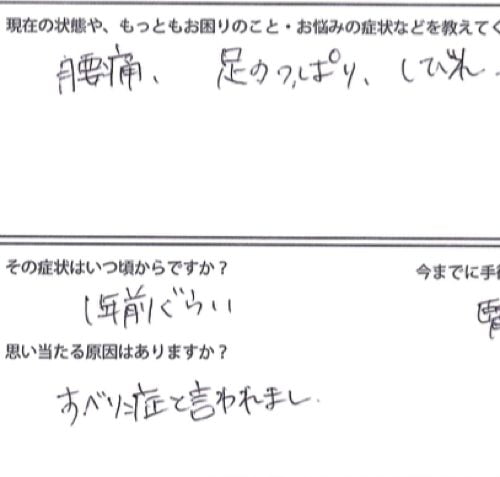 現在の状態や、もっともお困りのこと・お悩みの症状などを教えてく
腰痛、 足のつっぱり、 しびれ.
その症状はいつ頃からですか？ 今までに手術
1年前ぐらい
思い当たる原因はありますか？
すべり症と言われまし.